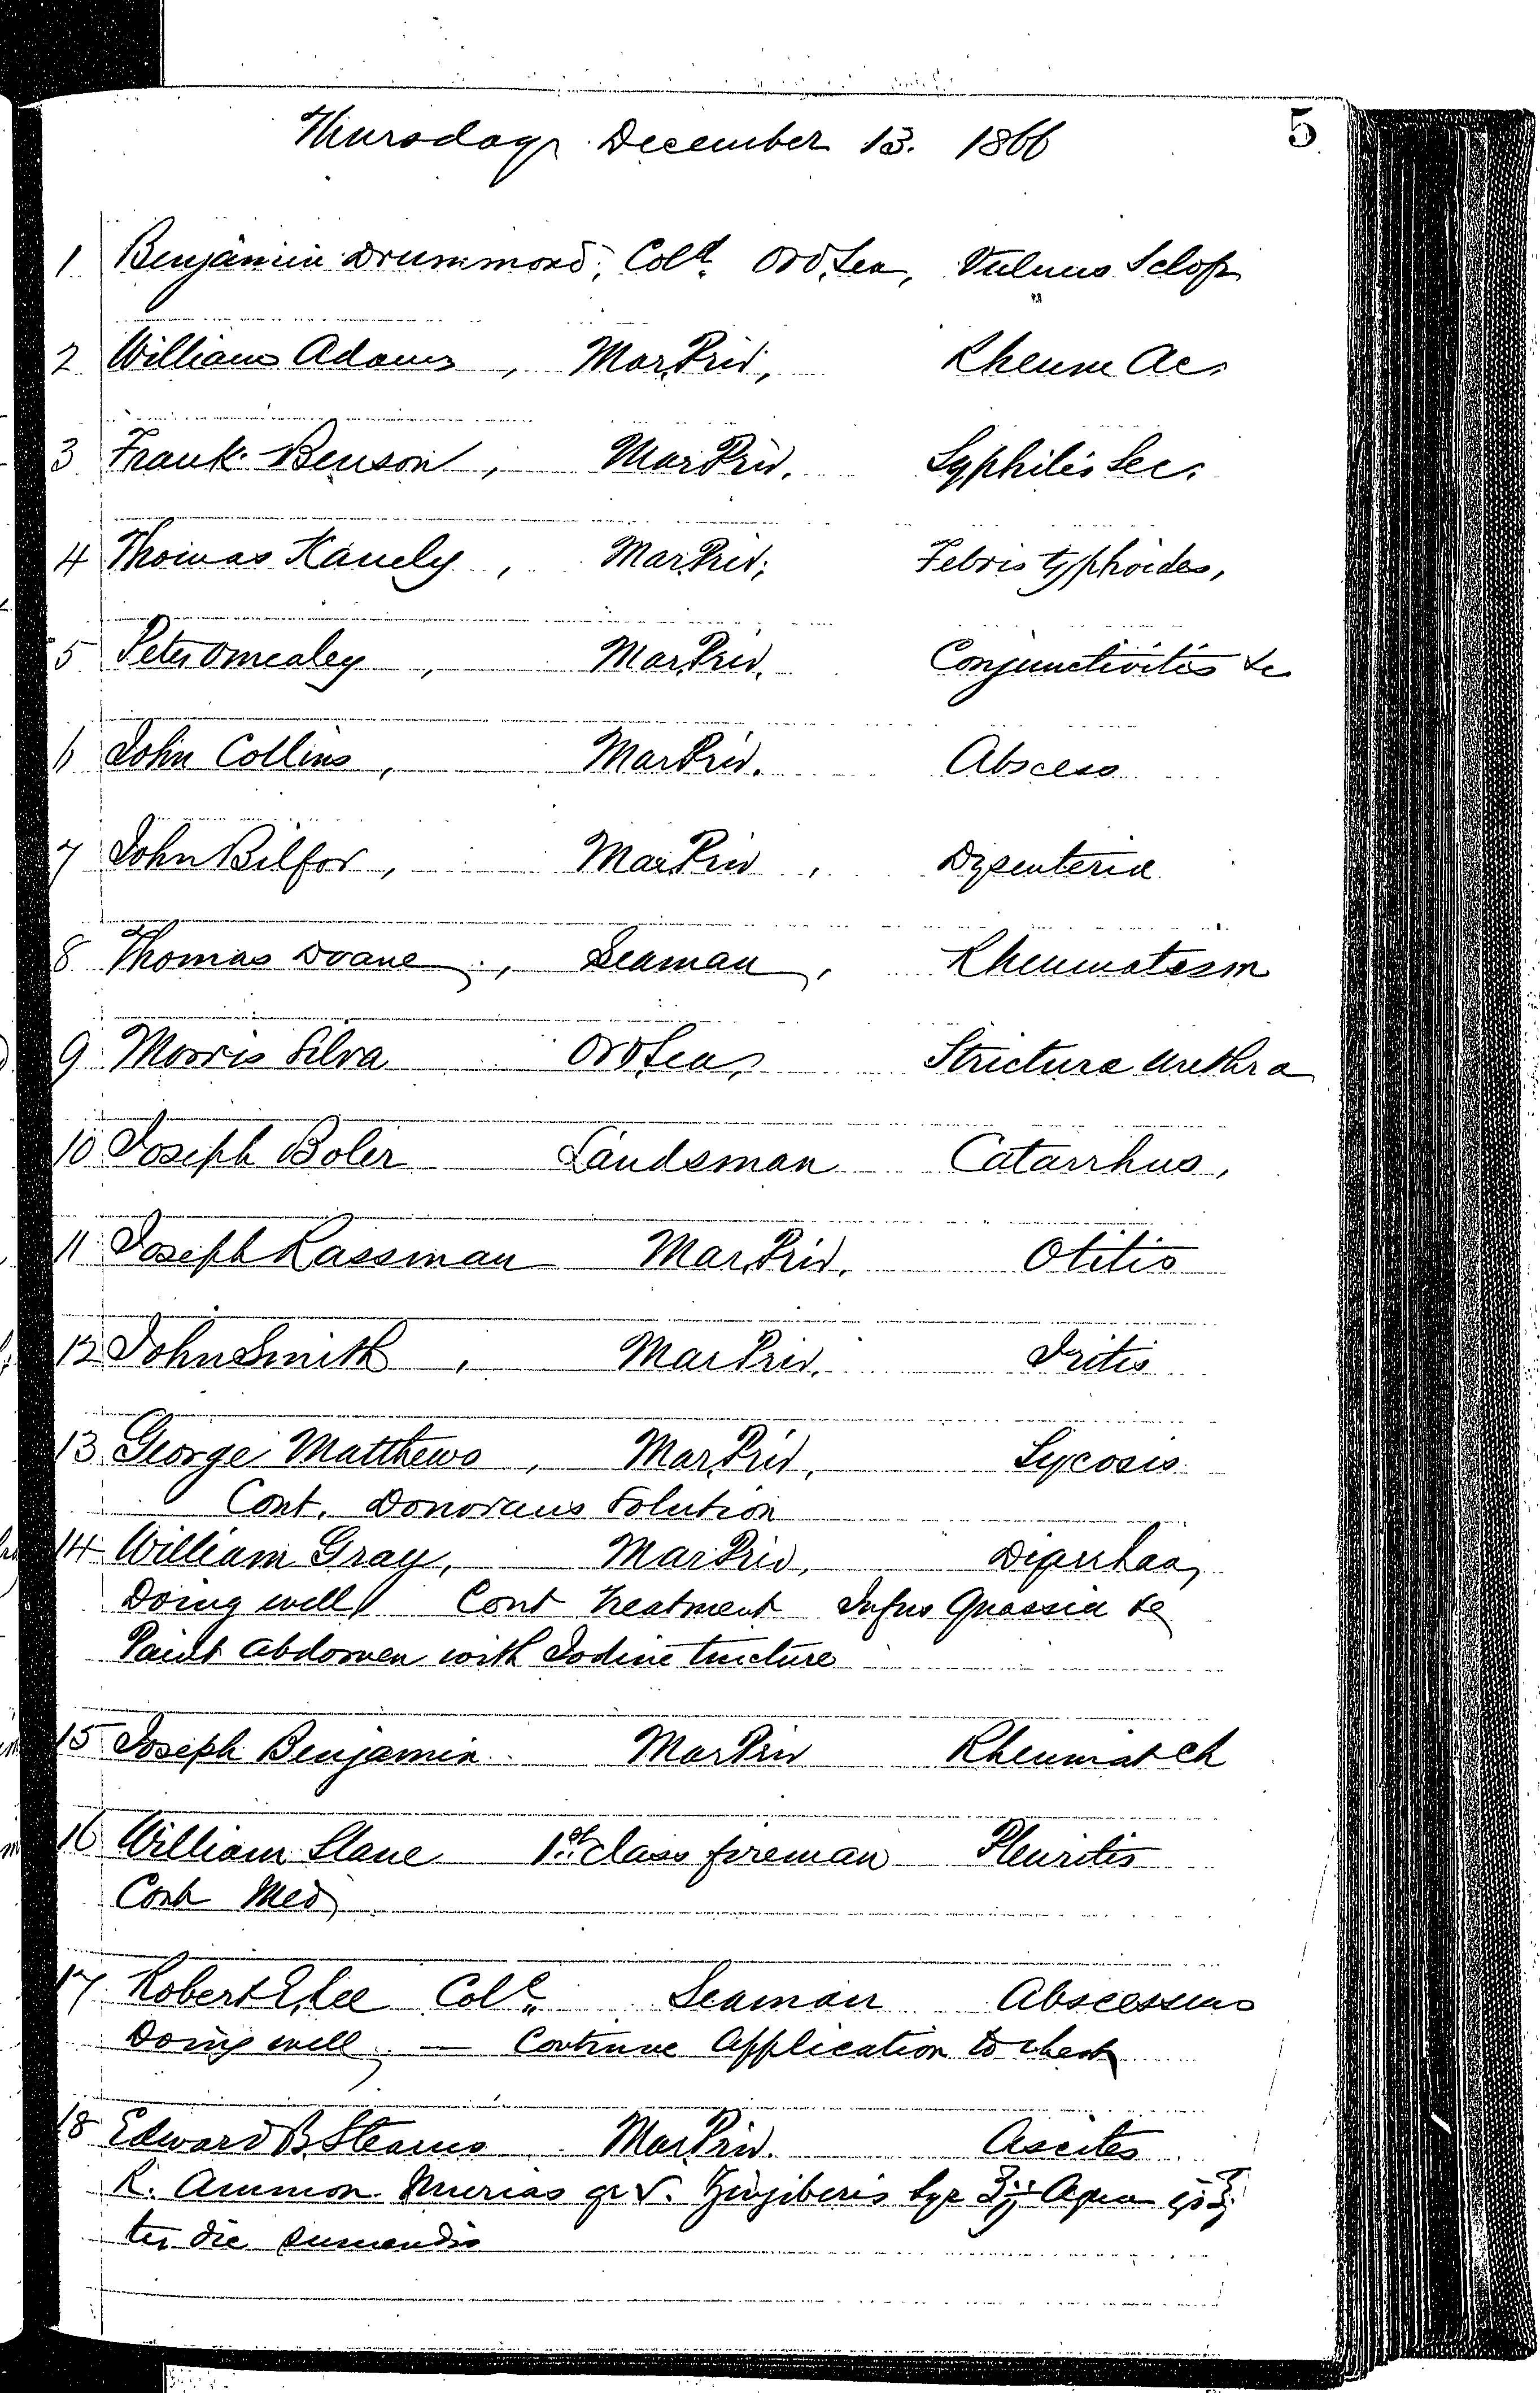 5
Thursday December 13. 1866
1 Benjamin Drummond, Cold. Ord. Sea, Vulnus Sclop
2 William Adams, Mar. Priv, Rheum Ac.
3 Frank Benson, Mar Priv. Syphilis Sec.
4 Thomas Kanely, Mar. Priv, Febris typhoides,
5 Peter Omealey, Mar. Priv. Conjunctivitis &c
6 John Collins, Mar Priv. Abscess
7 John Bilfor, Mar. Priv, Dysenteria
8 Thomas Doane, Seaman, Rheumatism
9 Morris Silva Ord Sea, Stricture Urethra
10 Joseph Boler Landsman Catarrhus,
11 Joseph Rassman Mar. Priv. Otitis
12 John Smith, Mar Priv. Iritis
13 George Matthews, Mar. Priv. Sycosis
Cont. Donovans Solution
14 William Gray, Mar. Priv, Diarrhœa,
Doing well, Cont Treatment Infus Quassia &c
Paint abdomen with Iodine tincture
15 Joseph Benjamin Mar Priv Rheumat ch
16 William Slane 1st class fireman Pleuritis
Cont Med
17 Robert E. Lee Cold. Seaman Abscessus
Doing well, — Continue Application to
18 Edward B. Stearns Mar. Priv. Ascites
R. Ammon. Murias gr V. Zingiberis Syr ʒij Aqua
ter die sumendis